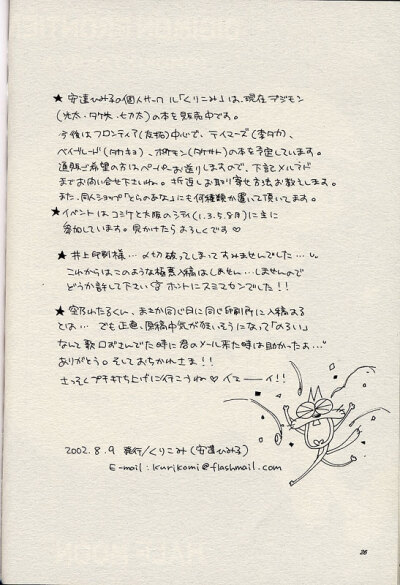 ★ 安達ひみるの個人サークル「くりこみ」は、現在デジモン
(光太・タケ光・ヒカ太)の本を販売中です。
今後はフロンティア(友拓)中心で、テイマーズ(李タカ)、
ベイブレード(タカキョ)、ポケモン(タケサト)の本を予定しています。
通販ご希望の方はペーパーお送りしますので、下記メルアド
までお問い合せ下さいね。折返しお取り寄せ方法お教えします。
また、同人ショップ「とらのあな」にも何種類か置いて頂いてます。
★ イベントはコミケと大阪のシティ(1.3.5.8月)に主に
参加しています。見かけたらよろしくです♡
★ 井上印刷様… 〆切破ってしまってすみませんでした…
これからはこのような極悪入稿はしません…しませんので
どうか許して下さい ホントにスミマセンでした!!
★ わたるくん、まさか同じ日に同じ印刷所に入稿する
とは… でも正直、原稿中気が狂いそうになって「のろい」
なんて歌口ずさんでた時に君のメール来た時は助かったよ…
ありがとう。そしておつかれさま!!
さっそくプチ打ち上げに行こうね♡ イェーーイ!!
2002.8.9 発行/くりこみ(安達ひみる)
E-mail:kurikomi@flashmail.com
26